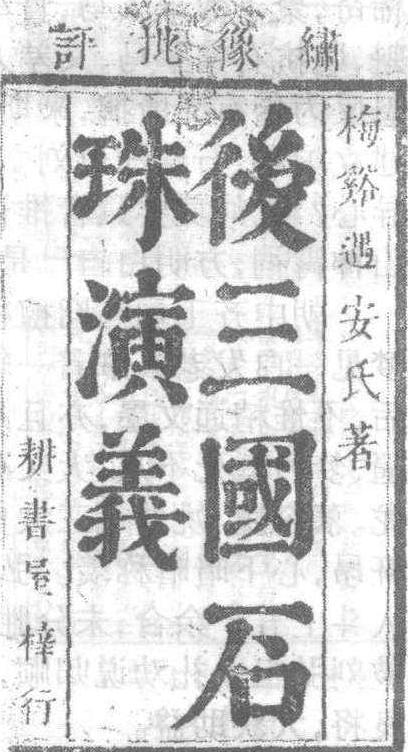 繡像批評
梅谿遇安氏著
後三國石
珠演義
耕書屋梓行